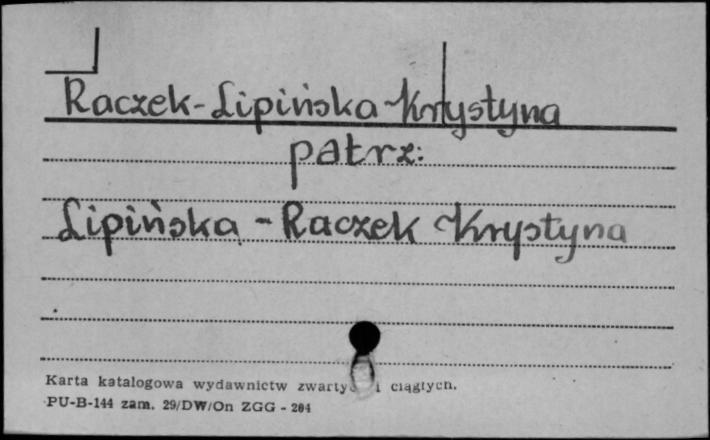 Raczek-Lipińska Krystyna
patrz:
Lipińska - Raczek Krystyna
Karta katalogowa wydawnictw zwartych i ciągłych.
PU-B-144 zam. 29/DW/On ZGG - 204